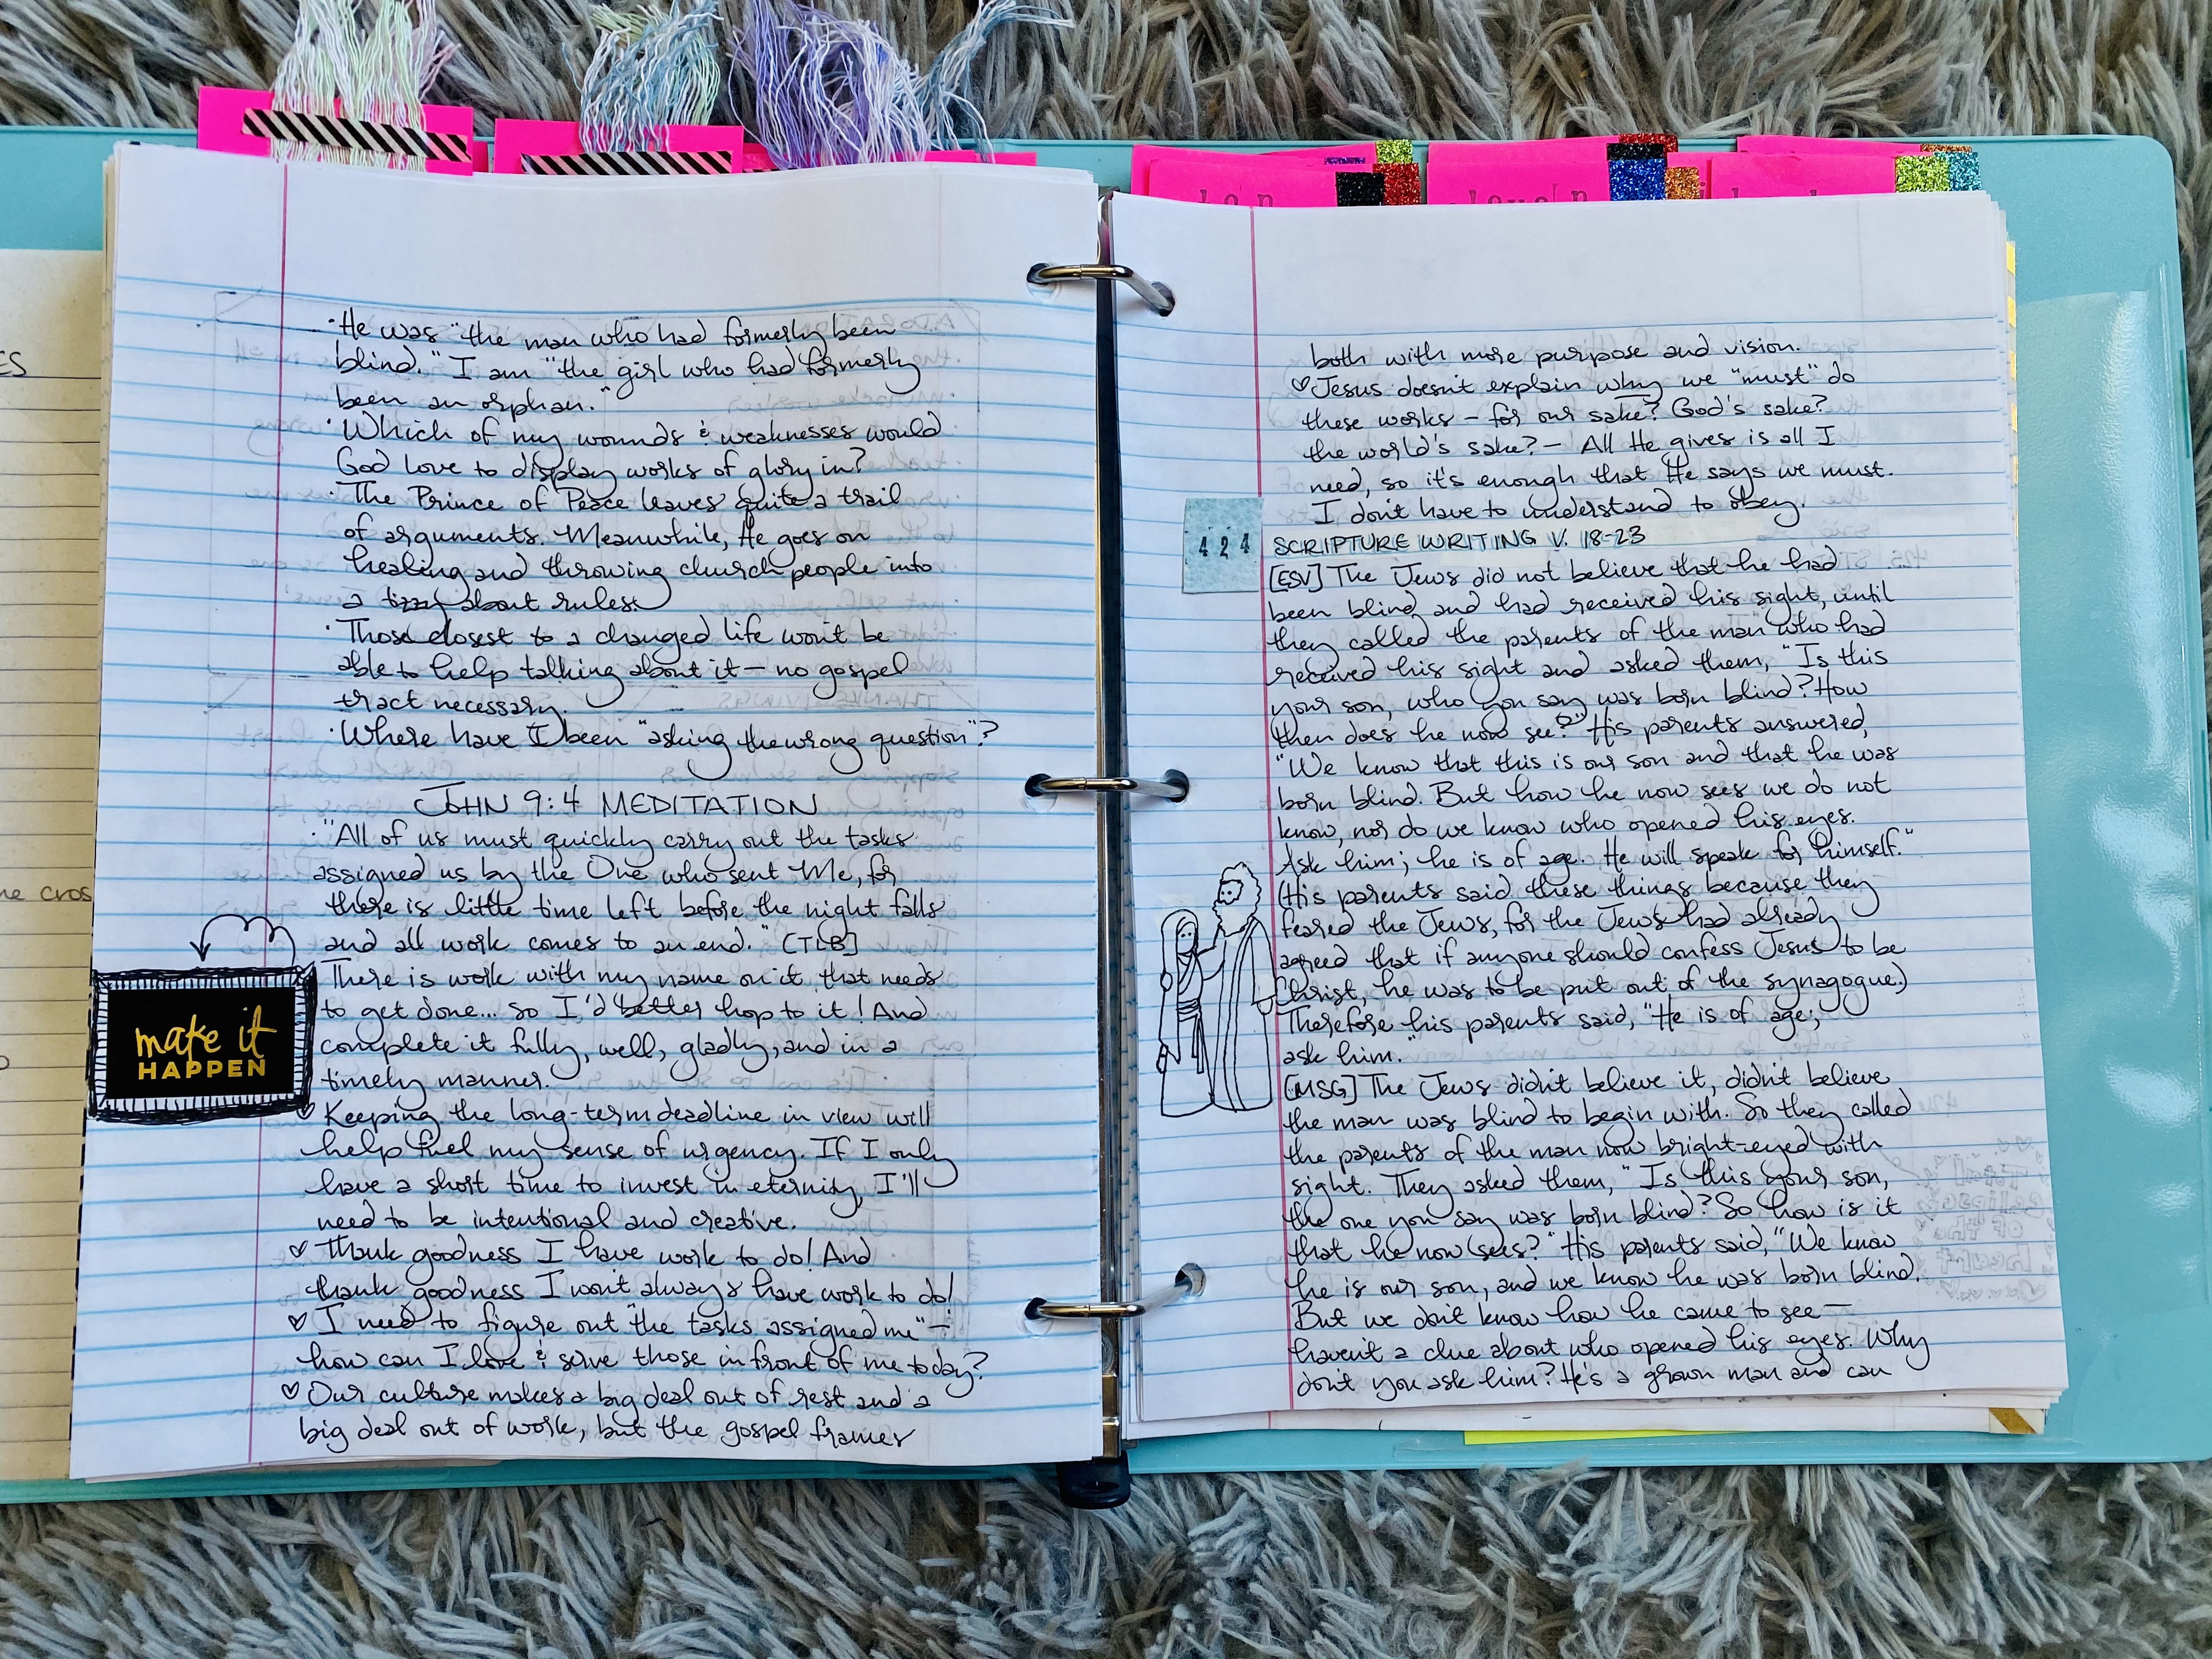 ES
he cros
· He was "the man who had formerly been
blind." I am "the girl who had formerly
been an orphan."
· Which of my wounds & weaknesses would
God love to display works of glory in?
· The Prince of Peace leaves quite a trail
of arguments. Meanwhile, He goes on
healing and throwing church people into
a tizzy about rules.
· Those closest to a changed life won't be
able to help talking about it — no gospel
tract necessary.
· Where have I been "asking the wrong question"?
JOHN 9:4 MEDITATION
· "All of us must quickly carry out the tasks
assigned us by the One who sent Me, for
there is little time left before the night falls
and all work comes to an end." [TLB]
There is work with my name on it that needs
to get done... so I'd better hop to it! And
complete it fully, well, gladly, and in a
timely manner.
make it
HAPPEN
♡ Keeping the long-term deadline in view will
help fuel my sense of urgency. If I only
have a short time to invest in eternity, I'll
need to be intentional and creative.
♡ Thank goodness I have work to do! And
thank goodness I won't always have work to do!
♡ I need to figure out "the tasks assigned me" —
how can I love & serve those in front of me today?
♡ Our culture makes a big deal out of rest and a
big deal out of work, but the gospel frames
both with more purpose and vision.
♡ Jesus doesn't explain why we "must" do
these works — for our sake? God's sake?
the world's sake? — All He gives is all I
need, so it's enough that He says we must.
I don't have to understand to obey.
424
SCRIPTURE WRITING V. 18-23
[ESV] The Jews did not believe that he had
been blind and had received his sight, until
they called the parents of the man who had
received his sight and asked them, "Is this
your son, who you say was born blind? How
then does he now see?" His parents answered,
"We know that this is our son and that he was
born blind. But how he now sees we do not
know, nor do we know who opened his eyes.
Ask him; he is of age. He will speak for himself."
(His parents said these things because they
feared the Jews, for the Jews had already
agreed that if anyone should confess Jesus to be
Christ, he was to be put out of the synagogue.)
Therefore his parents said, "He is of age;
ask him."
[MSG] The Jews didn't believe it, didn't believe
the man was blind to begin with. So they called
the parents of the man now bright-eyed with
sight. They asked them, "Is this your son,
the one you say was born blind? So how is it
that he now sees?" His parents said, "We know
he is our son, and we know he was born blind.
But we don't know how he came to see —
haven't a clue about who opened his eyes. Why
don't you ask him? He's a grown man and can